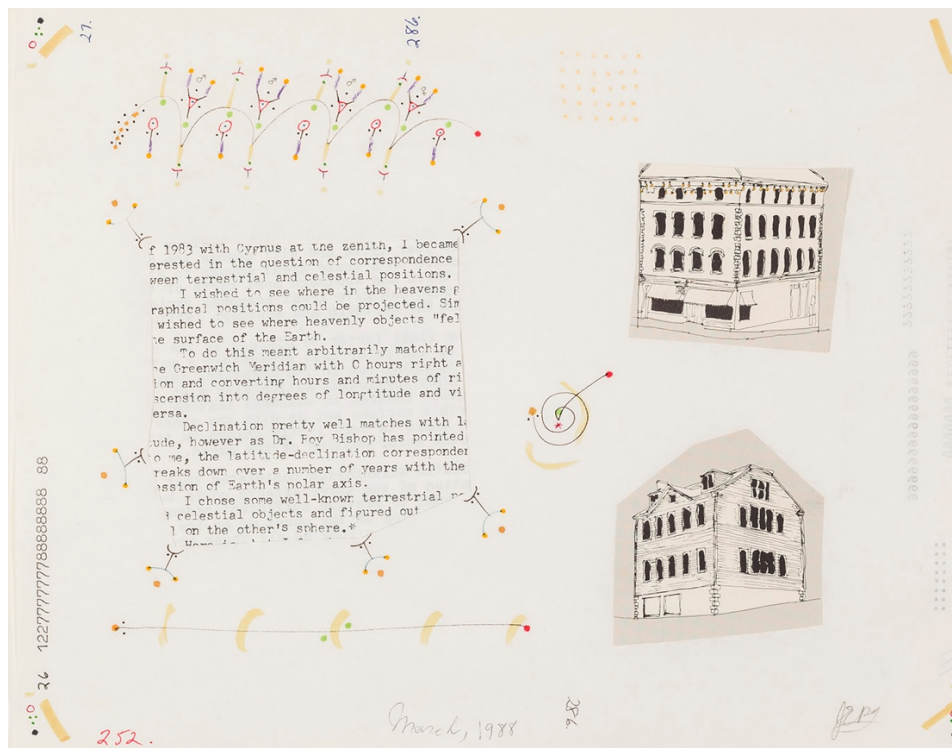 27.
286.
f 1983 with Cygnus at tne zenith, I became
erested in the question of correspondence
ween terrestrial and celestial positions.
I wished to see where in the heavens g
raphical positions could be projected. Sim
wished to see where heavenly objects "fel
e surface of the Earth.
To do this meant arbitrarily matching
he Greenwich Meridian with 0 hours right a
ion and converting hours and minutes of ri
scension into degrees of longtitude and vi
ersa.
Declination pretty well matches with la
ude, however as Dr. Roy Bishop has pointed
o me, the latitude-declination corresponden
reaks down over a number of years with the
ession of Earth's polar axis.
I chose some well-known terrestrial po
celestial objects and figured out
l on the other's sphere.*
26 1227777777788888888 88
252.
March, 1988
286